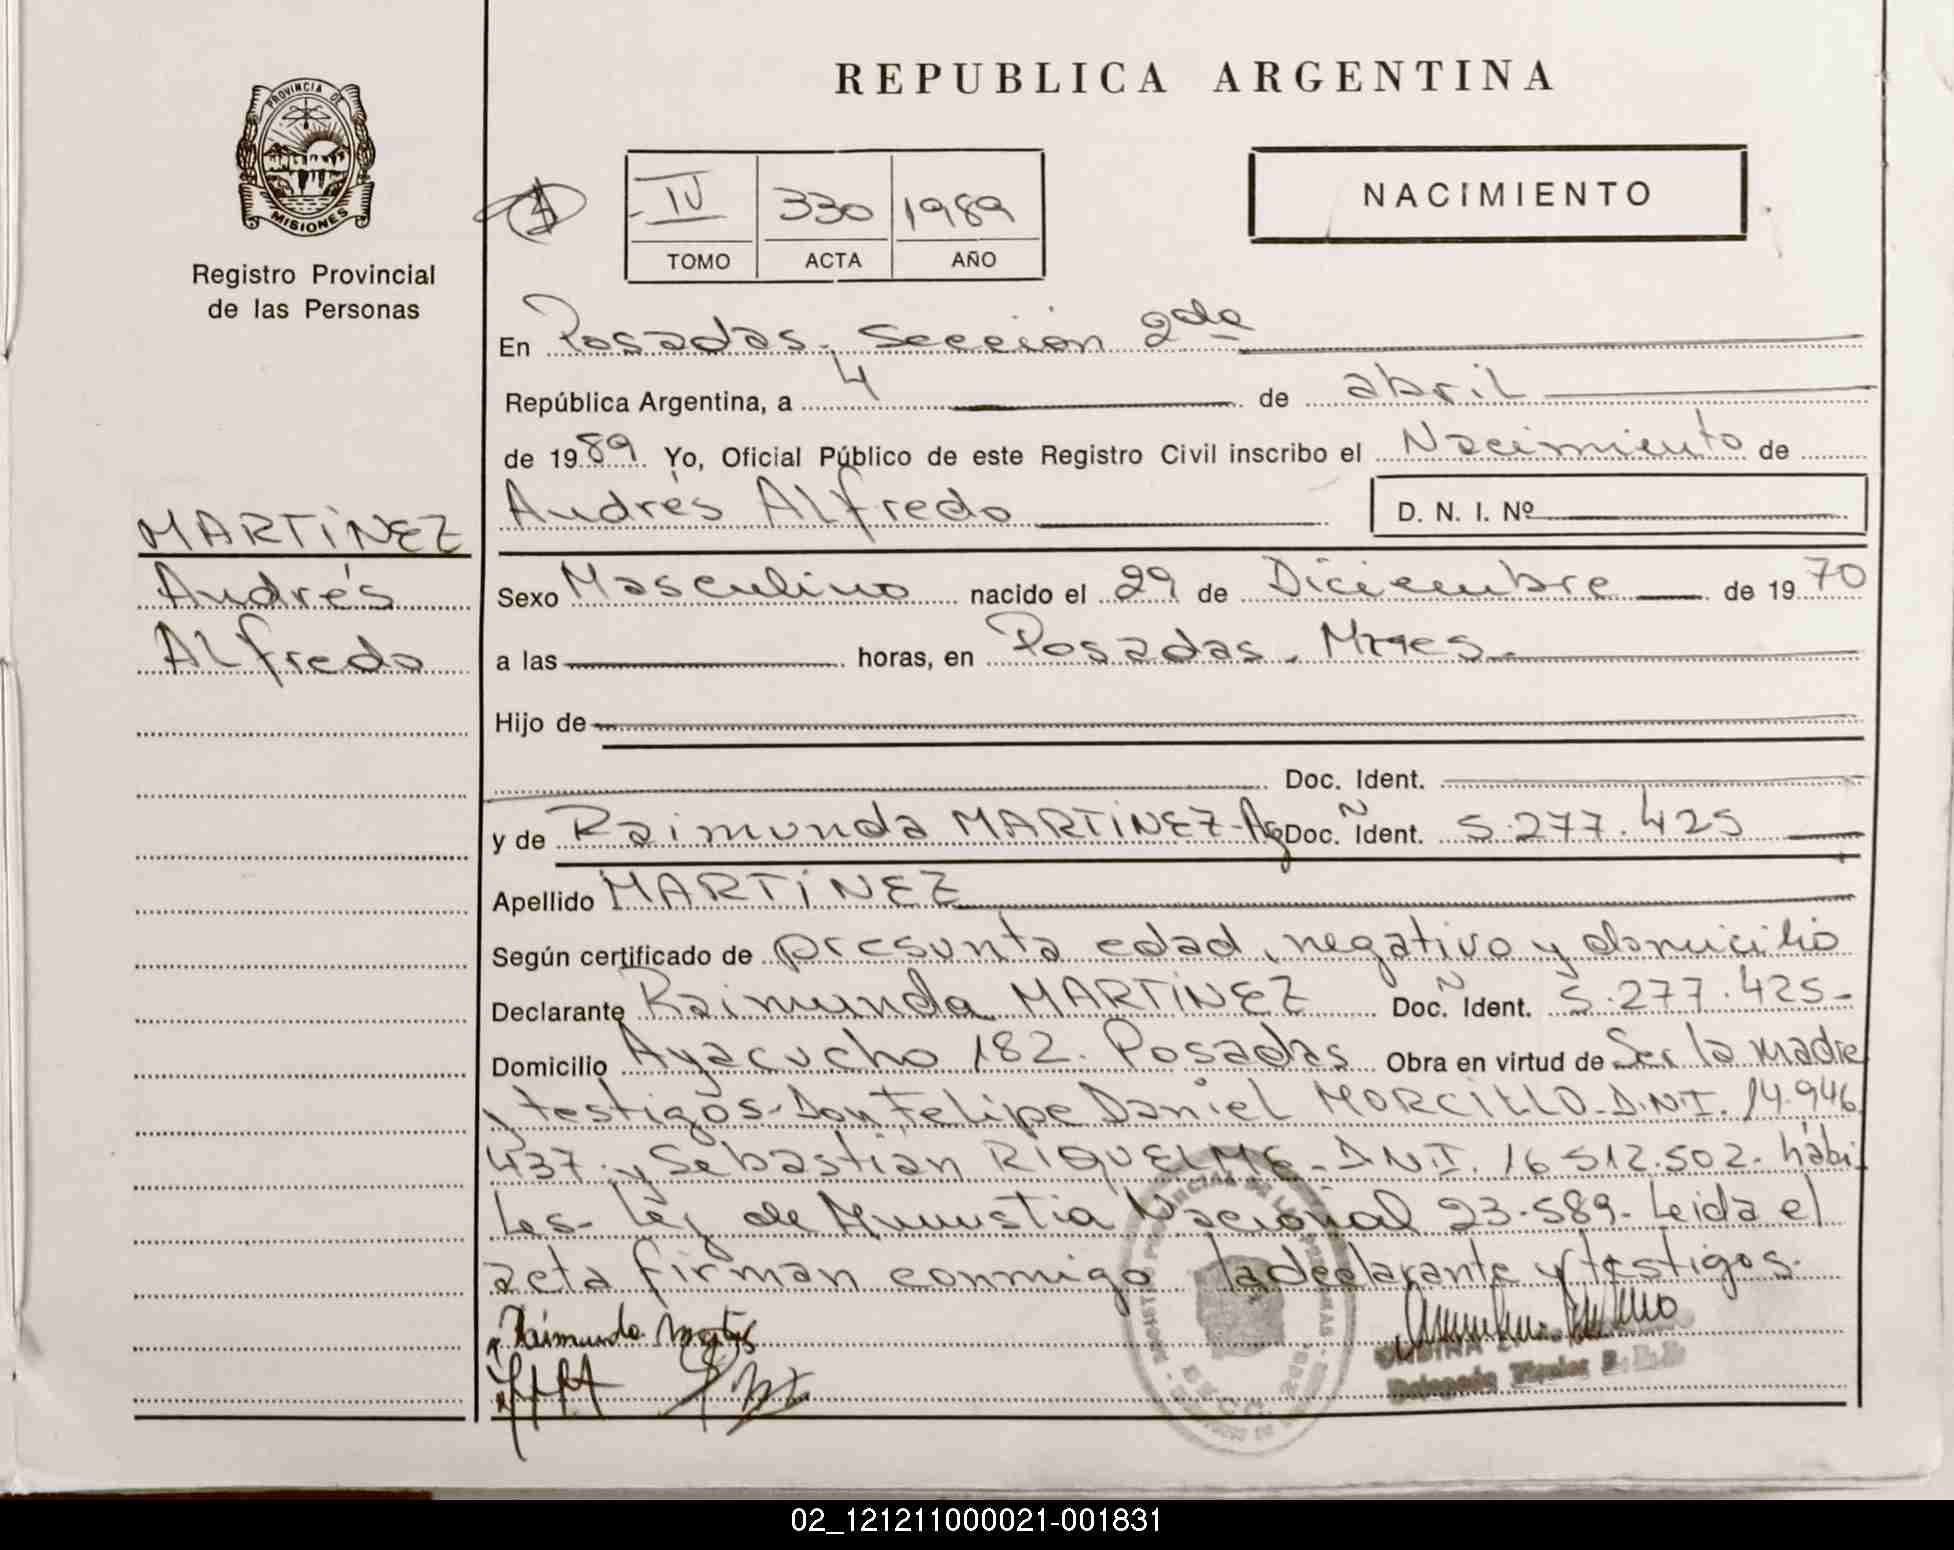 PROVINCIA DE
MISIONES
Registro Provincial
de las Personas
MARTÍNEZ
Andrés
Alfredo
REPUBLICA ARGENTINA
IV 330 1989
TOMO ACTA AÑO
NACIMIENTO
En Posadas. Sección 2da
República Argentina, a 4 de abril
de 1989 Yo, Oficial Público de este Registro Civil inscribo el Nacimiento de
Andrés Alfredo D. N. I. Nº
Sexo Masculino nacido el 29 de Diciembre de 1970
a las horas, en Posadas. Mnes.
Hijo de
Doc. Ident.
y de Raimunda MARTÍNEZ- Ag Doc. Ident. Ñ 5.277.425
Apellido MARTÍNEZ
Según certificado de presunta edad, negativo y domicilio
Declarante Raimunda MARTÍNEZ Doc. Ident. Ñ 5.277.425-
Domicilio Ayacucho 182. Posadas Obra en virtud de Ser la madre
y testigos- Don Felipe Daniel MORCILLO- D.N.I. 14.946.
437. y Sebastián RIQUELME- D.N.I. 16.512.502. hábi-
les- Ley de Amnistia Nacional 23.589- Leida el
acta firman conmigo la declarante y testigos.
Raimunda
02_121211000021-001831